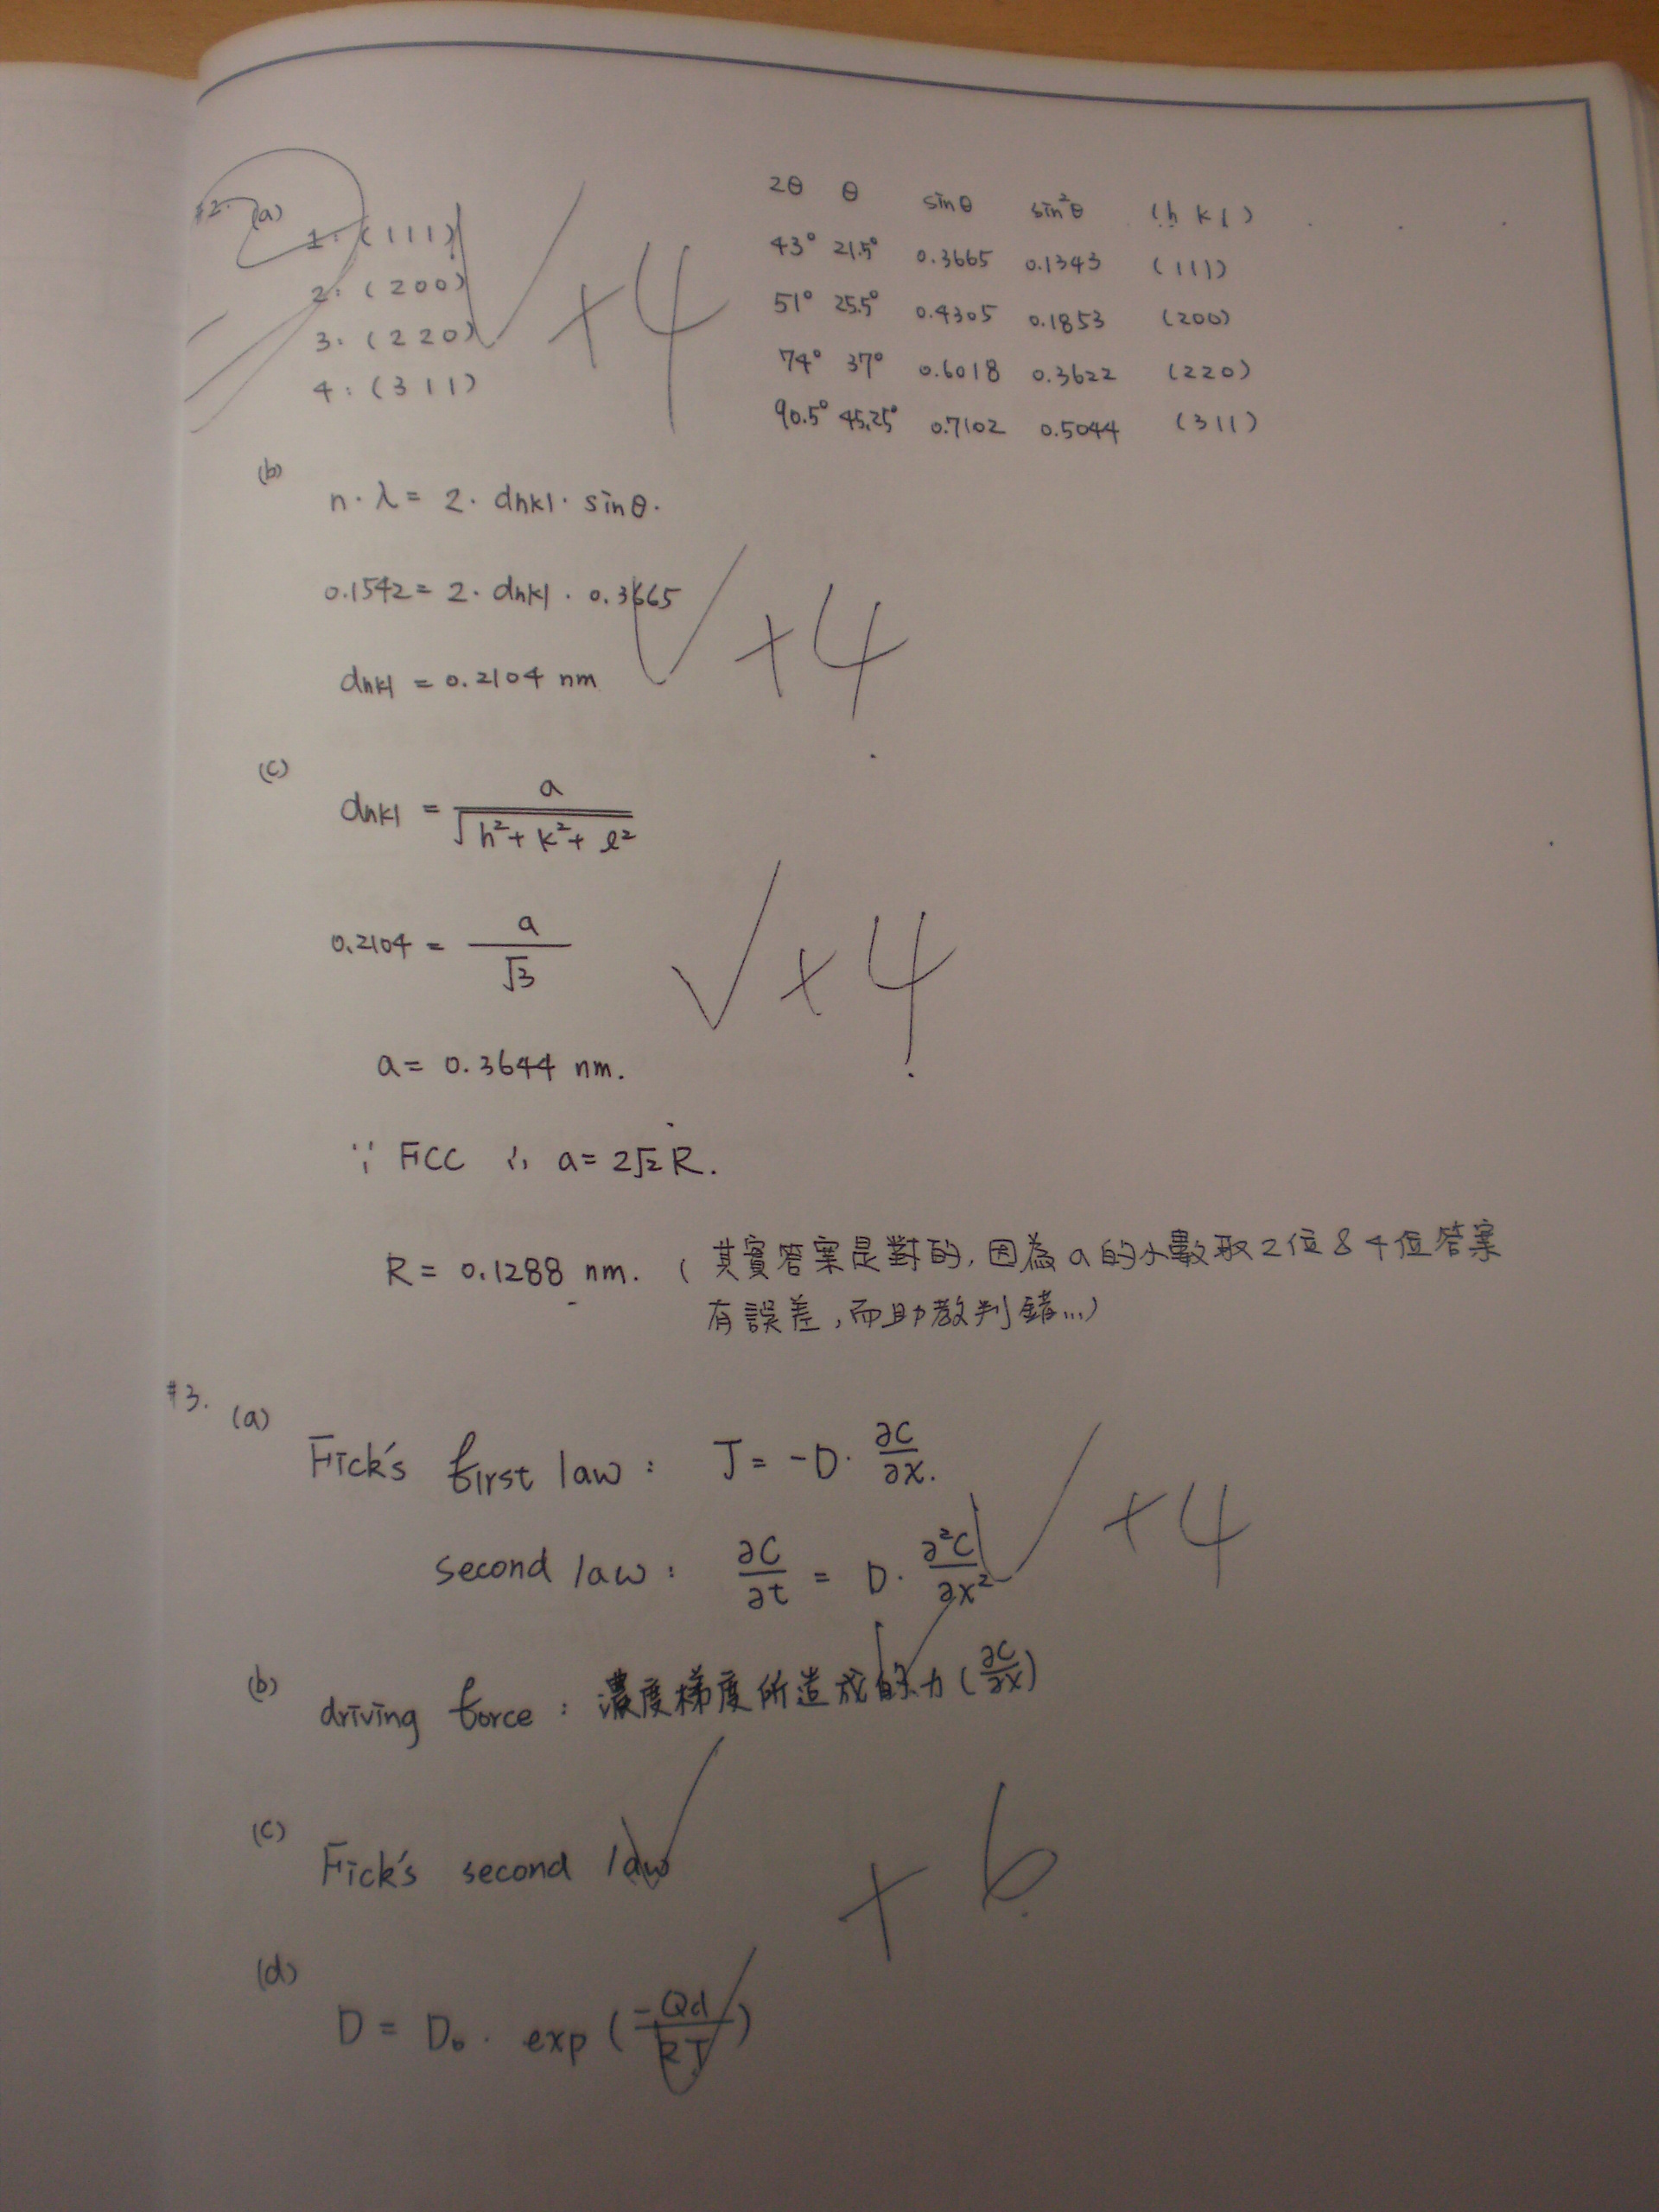 #2. (a)
1: (111)
2: (200)
3: (220)
4: (311)
+4
2θ θ sinθ sin²θ (h k l)
43° 21.5° 0.3665 0.1343 (111)
51° 25.5° 0.4305 0.1853 (200)
74° 37° 0.6018 0.3622 (220)
90.5° 45.25° 0.7102 0.5044 (311)
(b)
n·λ = 2·dhkl·sinθ.
0.1542 = 2·dhkl·0.3665
dhkl = 0.2104 nm
+4
(c)
dhkl = a / √(h²+k²+l²)
0.2104 = a / √3
+4
a = 0.3644 nm.
∵ FCC ∴ a = 2√2 R.
R = 0.1288 nm. (其實答案是對的, 因為a的小數取2位&4位答案
有誤差, 而助教判錯...)
#3. (a)
Fick's first law : J = -D· ∂C/∂x.
second law : ∂C/∂t = D· ∂²C/∂x²
+4
(b)
driving force : 濃度梯度所造成的力 (∂C/∂x)
(c)
Fick's second law
+6
(d)
D = D₀· exp(-Qd/RT)